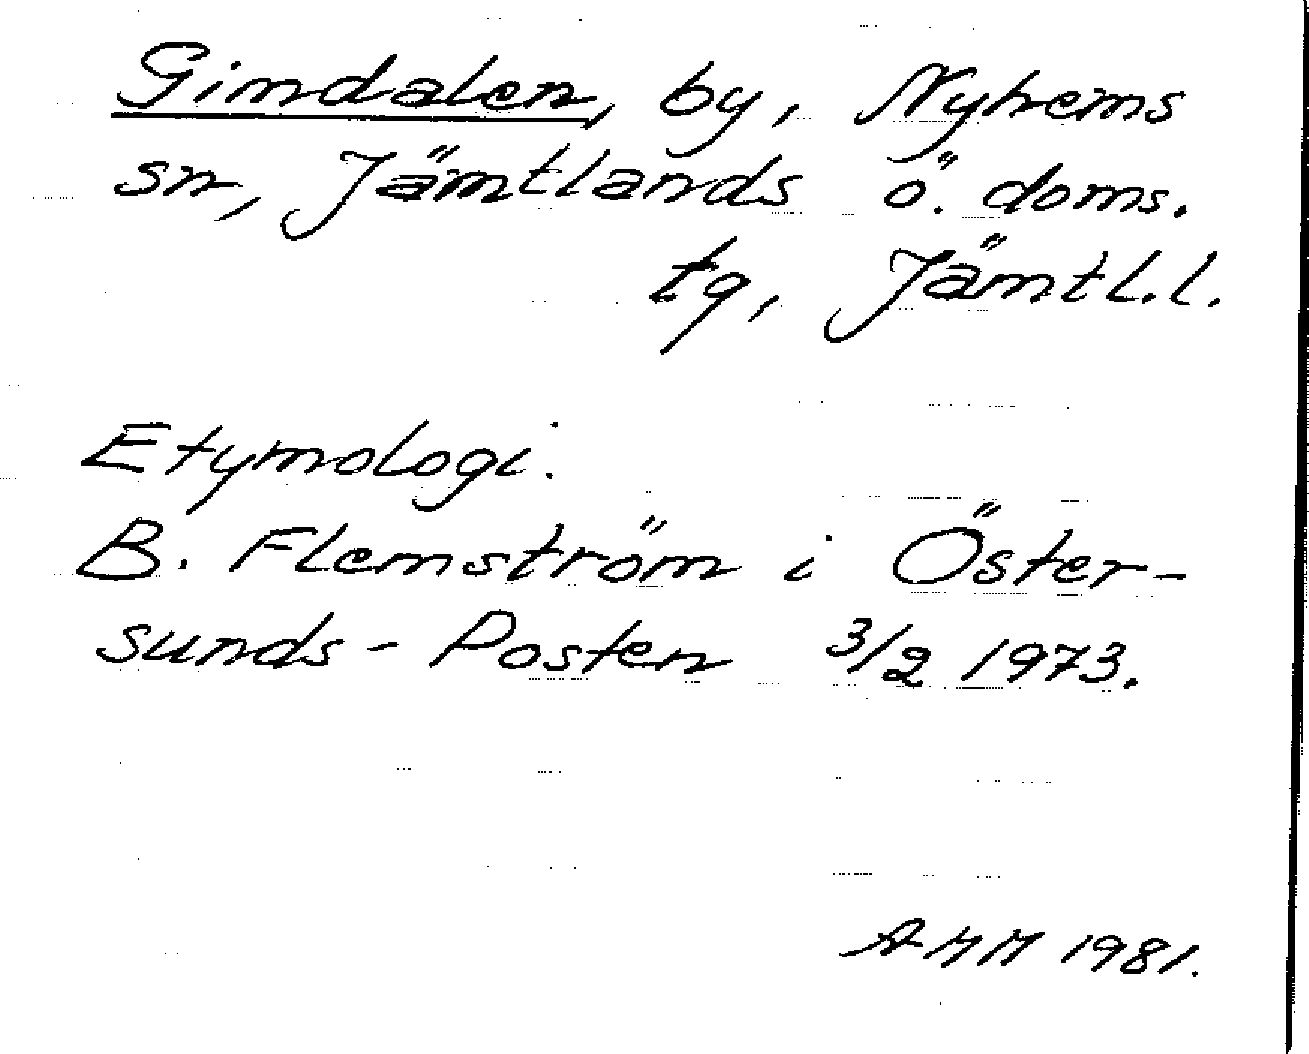 Gimdalen, by, Nyhems
sn, Jämtlands ö. doms.
tg, Jämtl.l.
Etymologi.
B. Flemström i Öster-
sunds-Posten 3/2 1973.
AMM 1981.